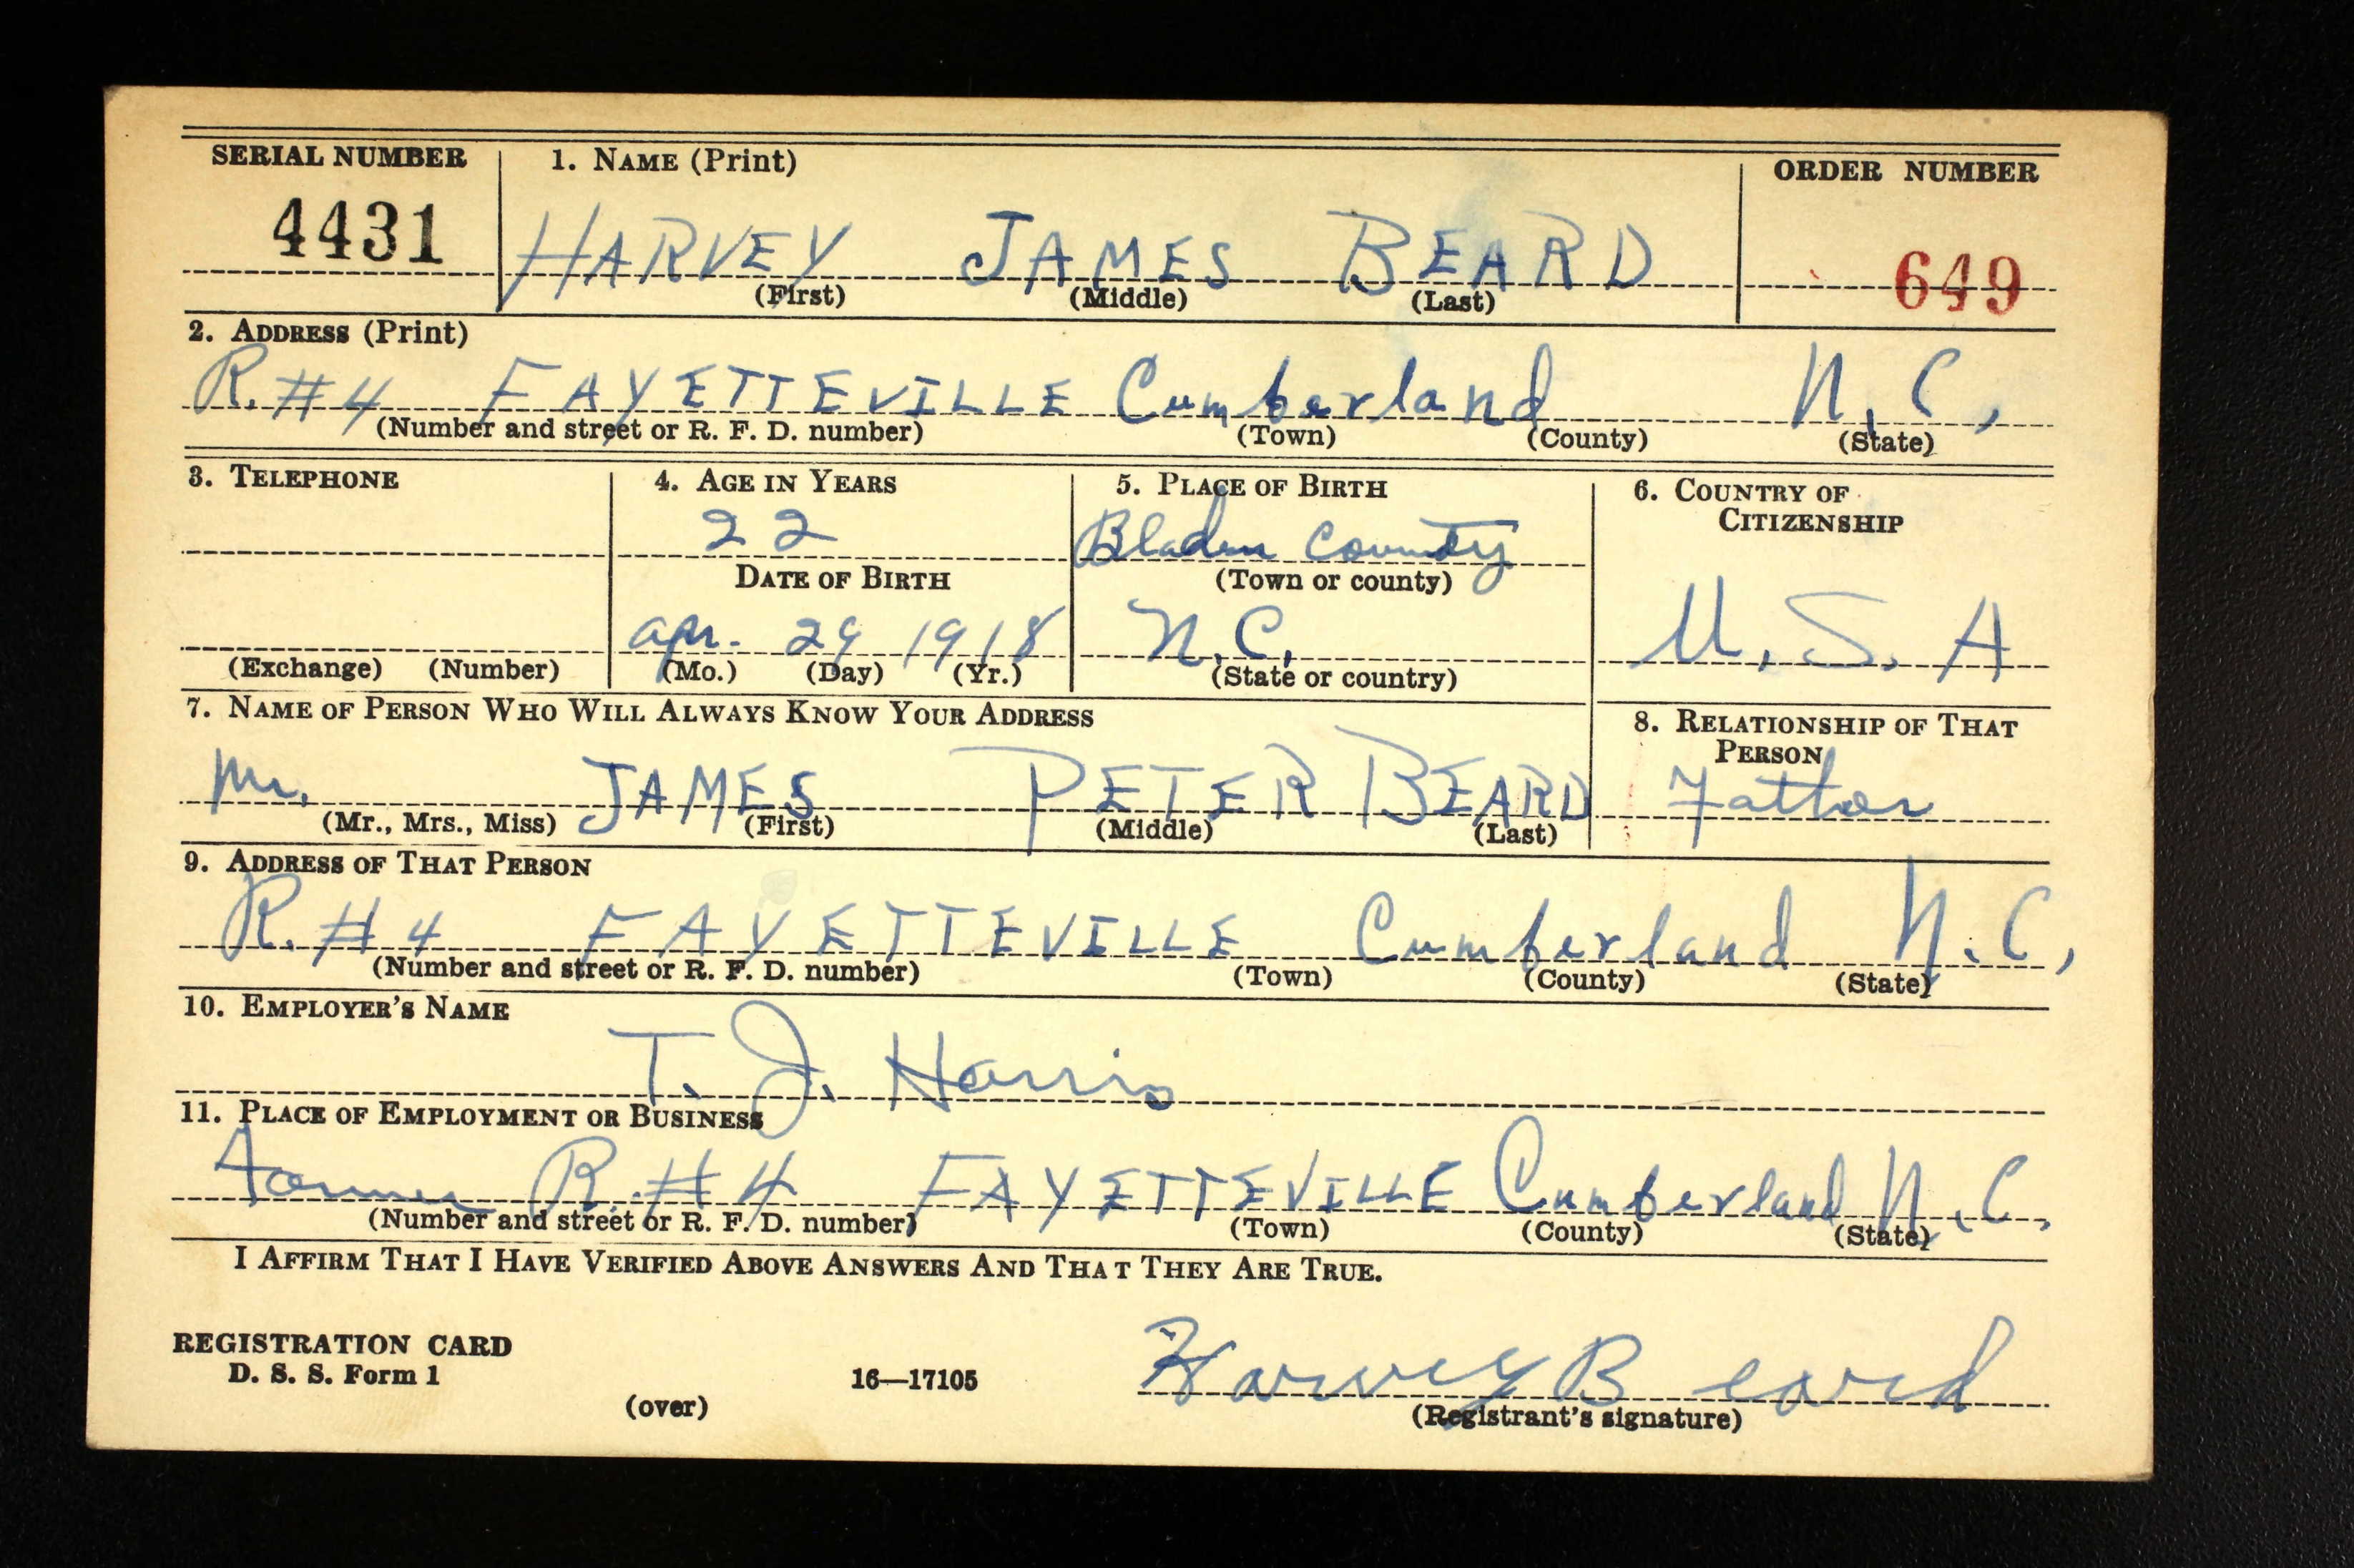 SERIAL NUMBER 1. NAME (Print) ORDER NUMBER
4431 HARVEY JAMES BEARD 649
(First) (Middle) (Last)
2. ADDRESS (Print)
R. #4 FAYETTEVILLE Cumberland N.C.,
(Number and street or R. F. D. number) (Town) (County) (State)
3. TELEPHONE 4. AGE IN YEARS 5. PLACE OF BIRTH 6. COUNTRY OF
CITIZENSHIP
22 Bladen County
DATE OF BIRTH (Town or county)
apr. 29 1918 N.C. U.S.A
(Exchange) (Number) (Mo.) (Day) (Yr.) (State or country)
7. NAME OF PERSON WHO WILL ALWAYS KNOW YOUR ADDRESS 8. RELATIONSHIP OF THAT
PERSON
Mr. JAMES PETER BEARD Father
(Mr., Mrs., Miss) (First) (Middle) (Last)
9. ADDRESS OF THAT PERSON
R. #4 FAYETTEVILLE Cumberland N.C,
(Number and street or R. F. D. number) (Town) (County) (State)
10. EMPLOYER'S NAME
T. J. Harris
11. PLACE OF EMPLOYMENT OR BUSINESS
R. #4 FAYETTEVILLE Cumberland N.C.
(Number and street or R. F. D. number) (Town) (County) (State)
I AFFIRM THAT I HAVE VERIFIED ABOVE ANSWERS AND THAT THEY ARE TRUE.
REGISTRATION CARD
D. S. S. Form 1 16—17105 Harvey Beard
(over) (Registrant's signature)